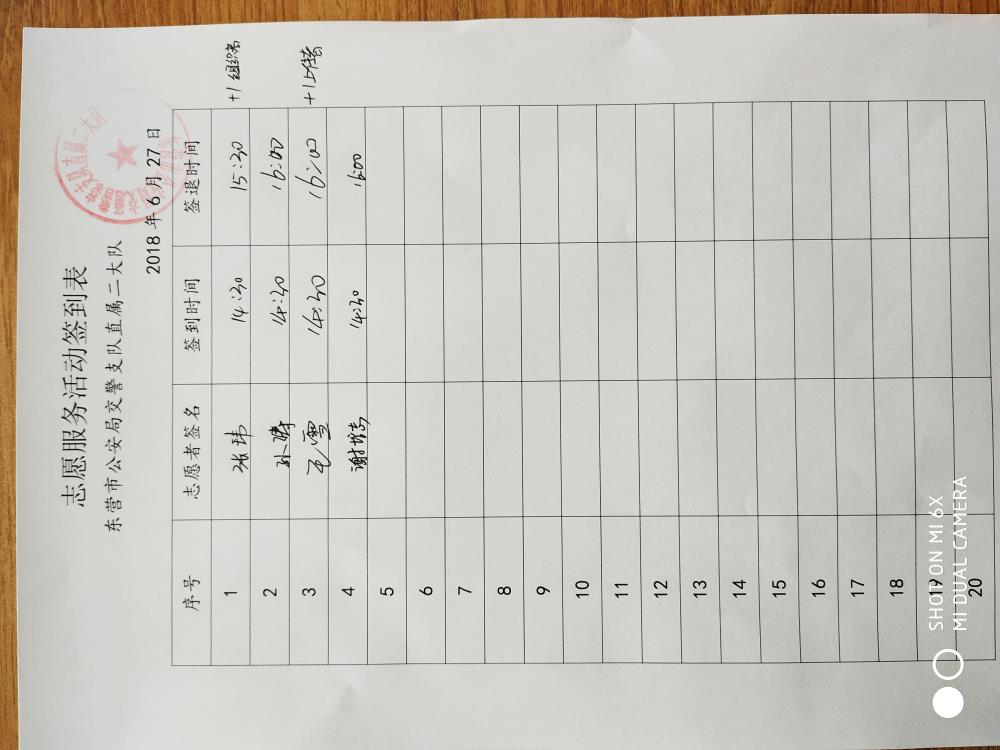 志愿服务活动签到表
东营市公安局交警支队直属二大队
2018 年 6 月 27 日
序号 志愿者签名 签到时间 签退时间
1 张玮 14:30 15:30 +1 组织者
2 14:30 16:00
3 14:30 16:00 +1
4 14:30 16:00
5
6
7
8
9
10
11
12
13
14
15
16
17
18
19
20
SHOT ON MI 6X
MI DUAL CAMERA